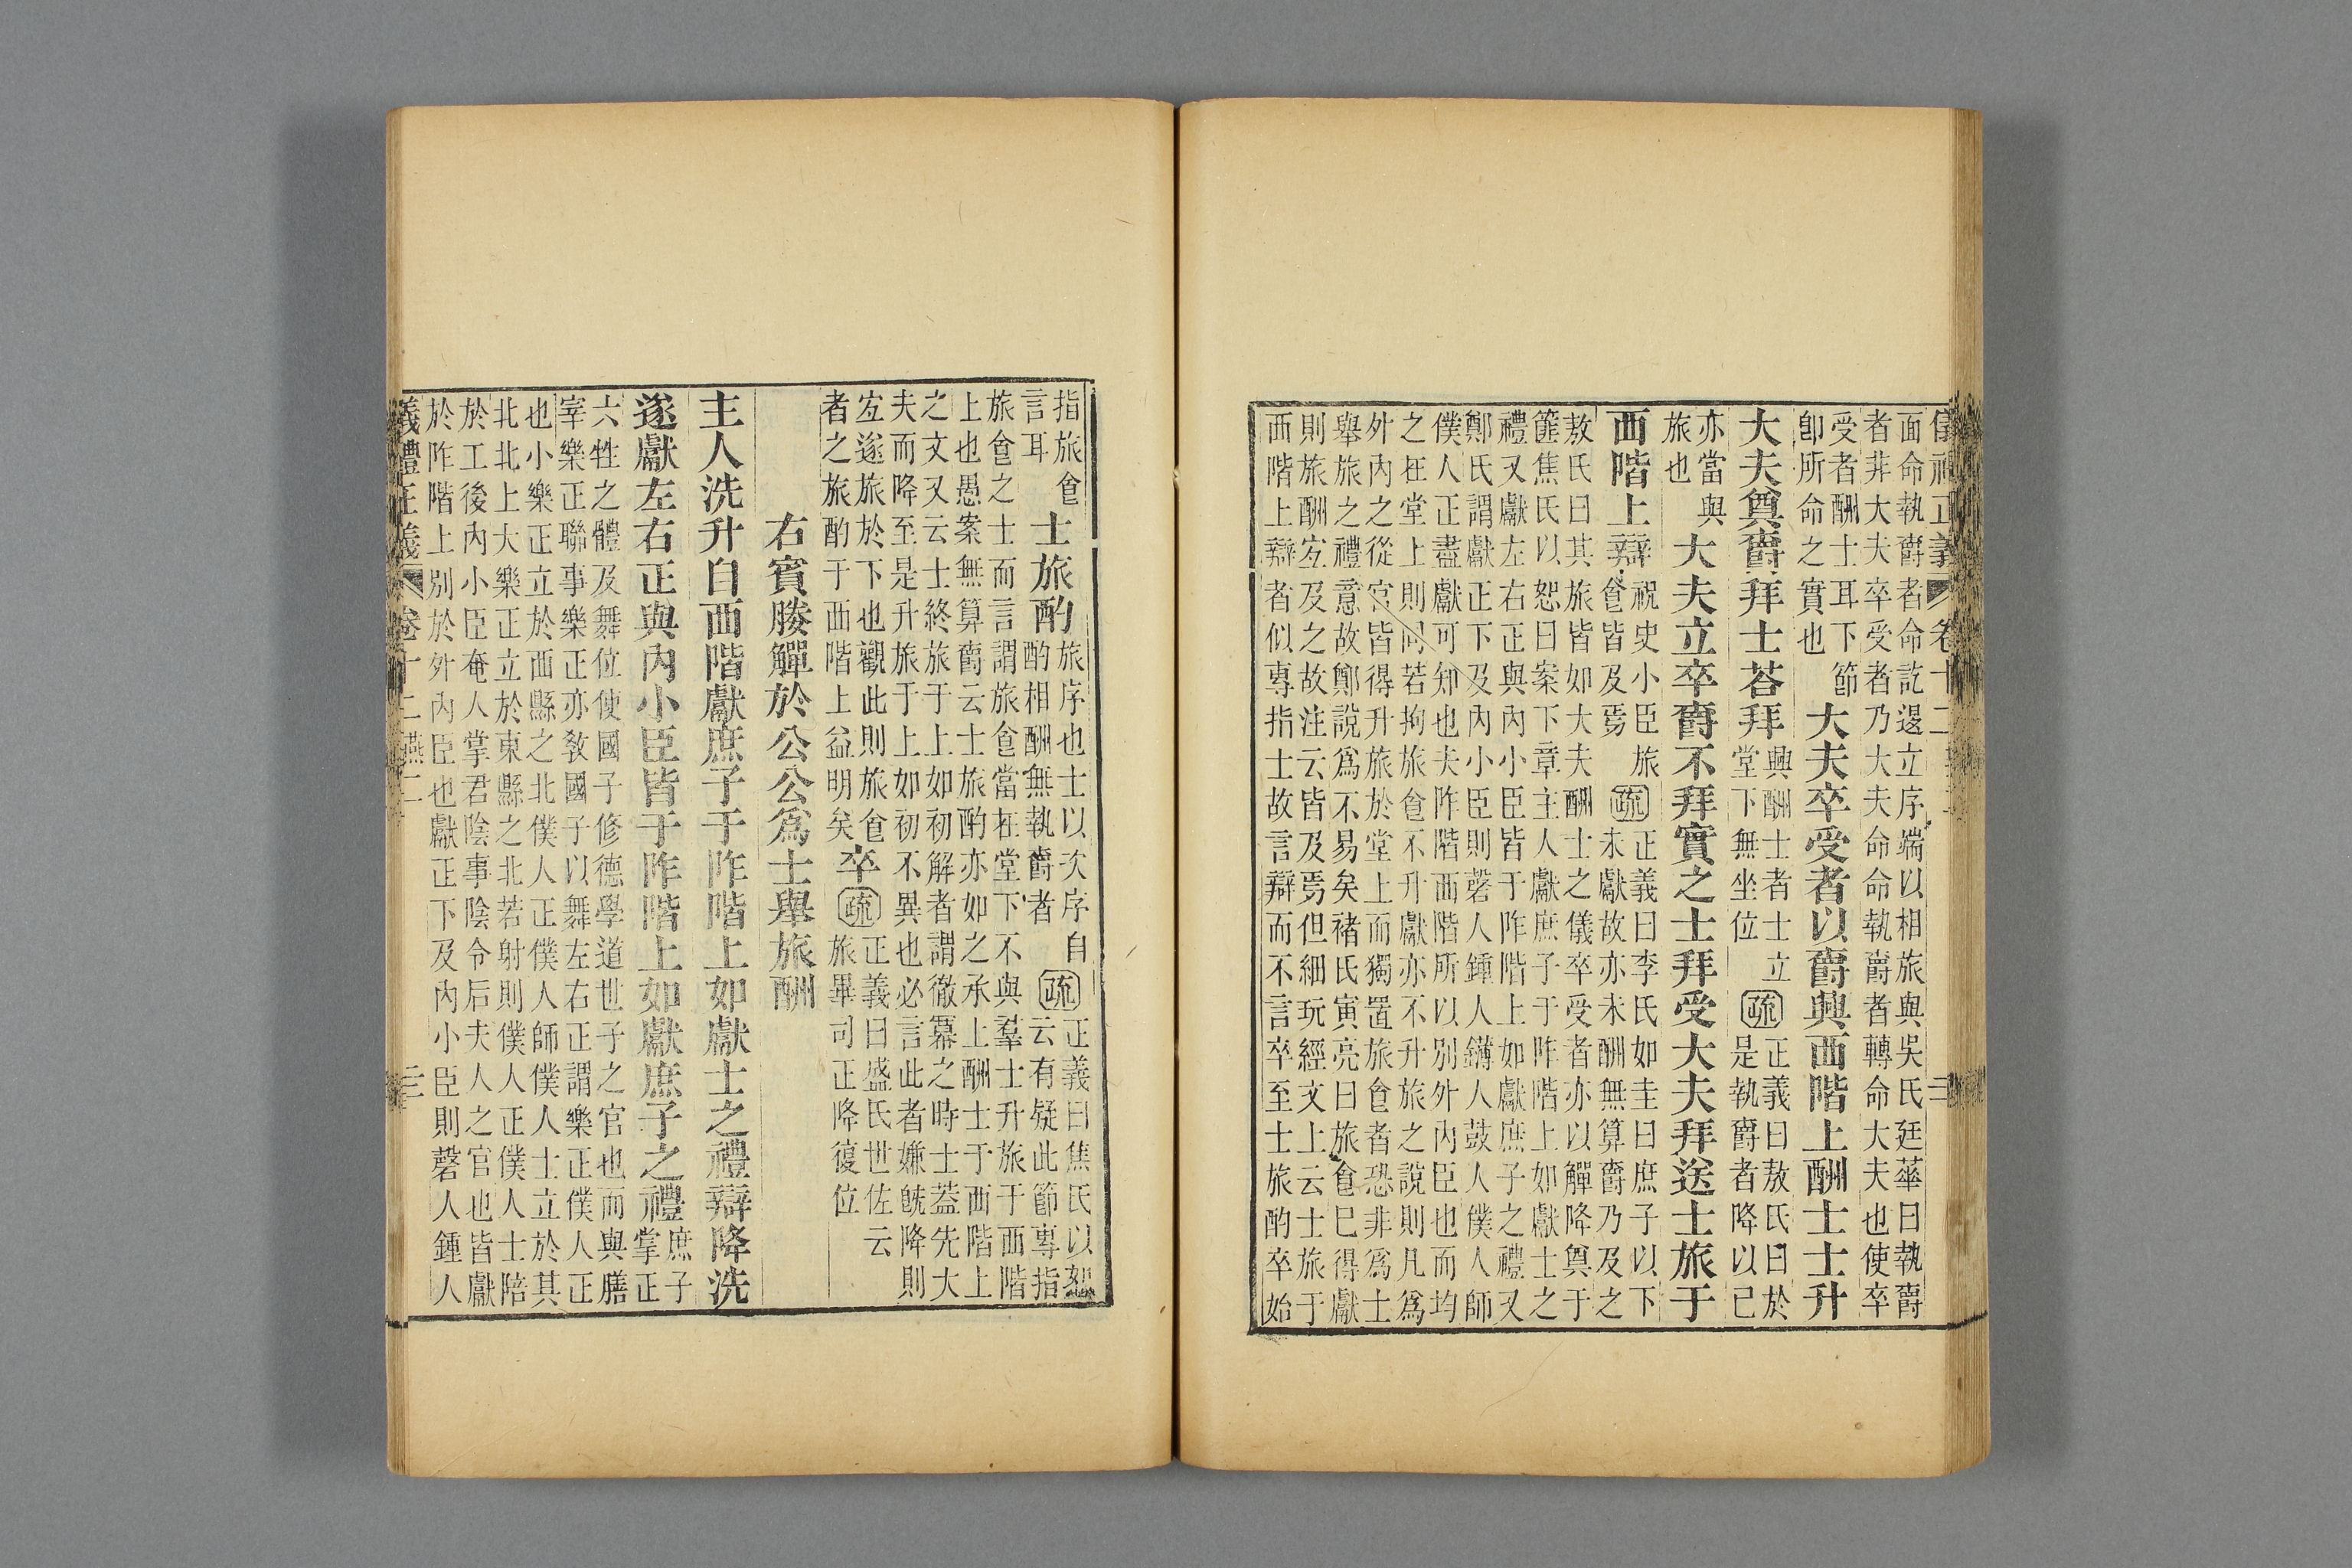 儀禮正義 卷十二 三
面命執爵者命訖還立序端以相旅與吳氏廷華曰執爵
者非大夫卒受者乃大夫命命執爵者轉命大夫也使卒
受者酬士耳下節
卽所命之實也
大夫卒受者以爵興西階上酬士士升
大夫奠爵拜士荅拜
興酬士者士立
堂下無坐位
疏
正義曰敖氏曰於
是執爵者降以己
亦當與
旅也
大夫立卒爵不拜實之士拜受大夫拜送士旅于
西階上辯
祝史小臣旅
食皆及焉
疏
正義曰李氏如圭曰庶子以下
未獻故亦未酬無算爵乃及之
敖氏曰其旅皆如大夫酬士之儀卒受者亦以觶降奠于
篚焦氏以恕曰案下章主人獻庶子于阼階上如獻士之
禮又獻左右正與內小臣皆于阼階上如獻庶子之禮又
鄭氏謂獻正下及內小臣則磬人鍾人鎛人鼓人僕人師
僕人正盡獻可知也夫阼階西階所以別外內臣也而均
之在堂上則同若拘旅食不升獻亦不升旅之說則凡爲
外內之從官皆得升旅於堂上而獨置旅食者恐非爲士
舉旅之禮意故鄭說爲不易矣褚氏寅亮曰旅食已得獻
則旅酬宜及之故注云皆及焉但細玩經文上云士旅于
西階上辯者似專指士故言辯而不言卒至士旅酌卒始
指旅食
言耳
士旅酌
旅序也士以次序自
酌相酬無執爵者
疏
正義曰焦氏以恕
云有疑此節專指
旅食之士而言謂旅食當在堂下不與羣士升旅于西階
上也愚案無算爵云士旅酌亦如之承上酬士于西階上
之文又云士終旅于上如初解者謂徹冪之時士蓋先大
夫而降至是升旅于上如初不異也必言此者嫌旣降則
宜遂旅於下也觀此則旅食
者之旅酌于西階上益明矣
卒
疏
正義曰盛氏世佐云
旅畢司正降復位
右賓媵觶於公公爲士舉旅酬
主人洗升自西階獻庶子于阼階上如獻士之禮辯降洗
遂獻左右正與內小臣皆于阼階上如獻庶子之禮
庶子
掌正
六牲之體及舞位使國子修德學道世子之官也而與膳
宰樂正聯事樂正亦敎國子以舞左右正謂樂正僕人正
也小樂正立於西縣之北僕人正僕人師僕人士立於其
北北上大樂正立於東縣之北若射則僕人正僕人士陪
於工後內小臣奄人掌君陰事陰令后夫人之官也皆獻
於阼階上別於外內臣也獻正下及內小臣則磬人鍾人
義禮正義 卷十二燕二 三